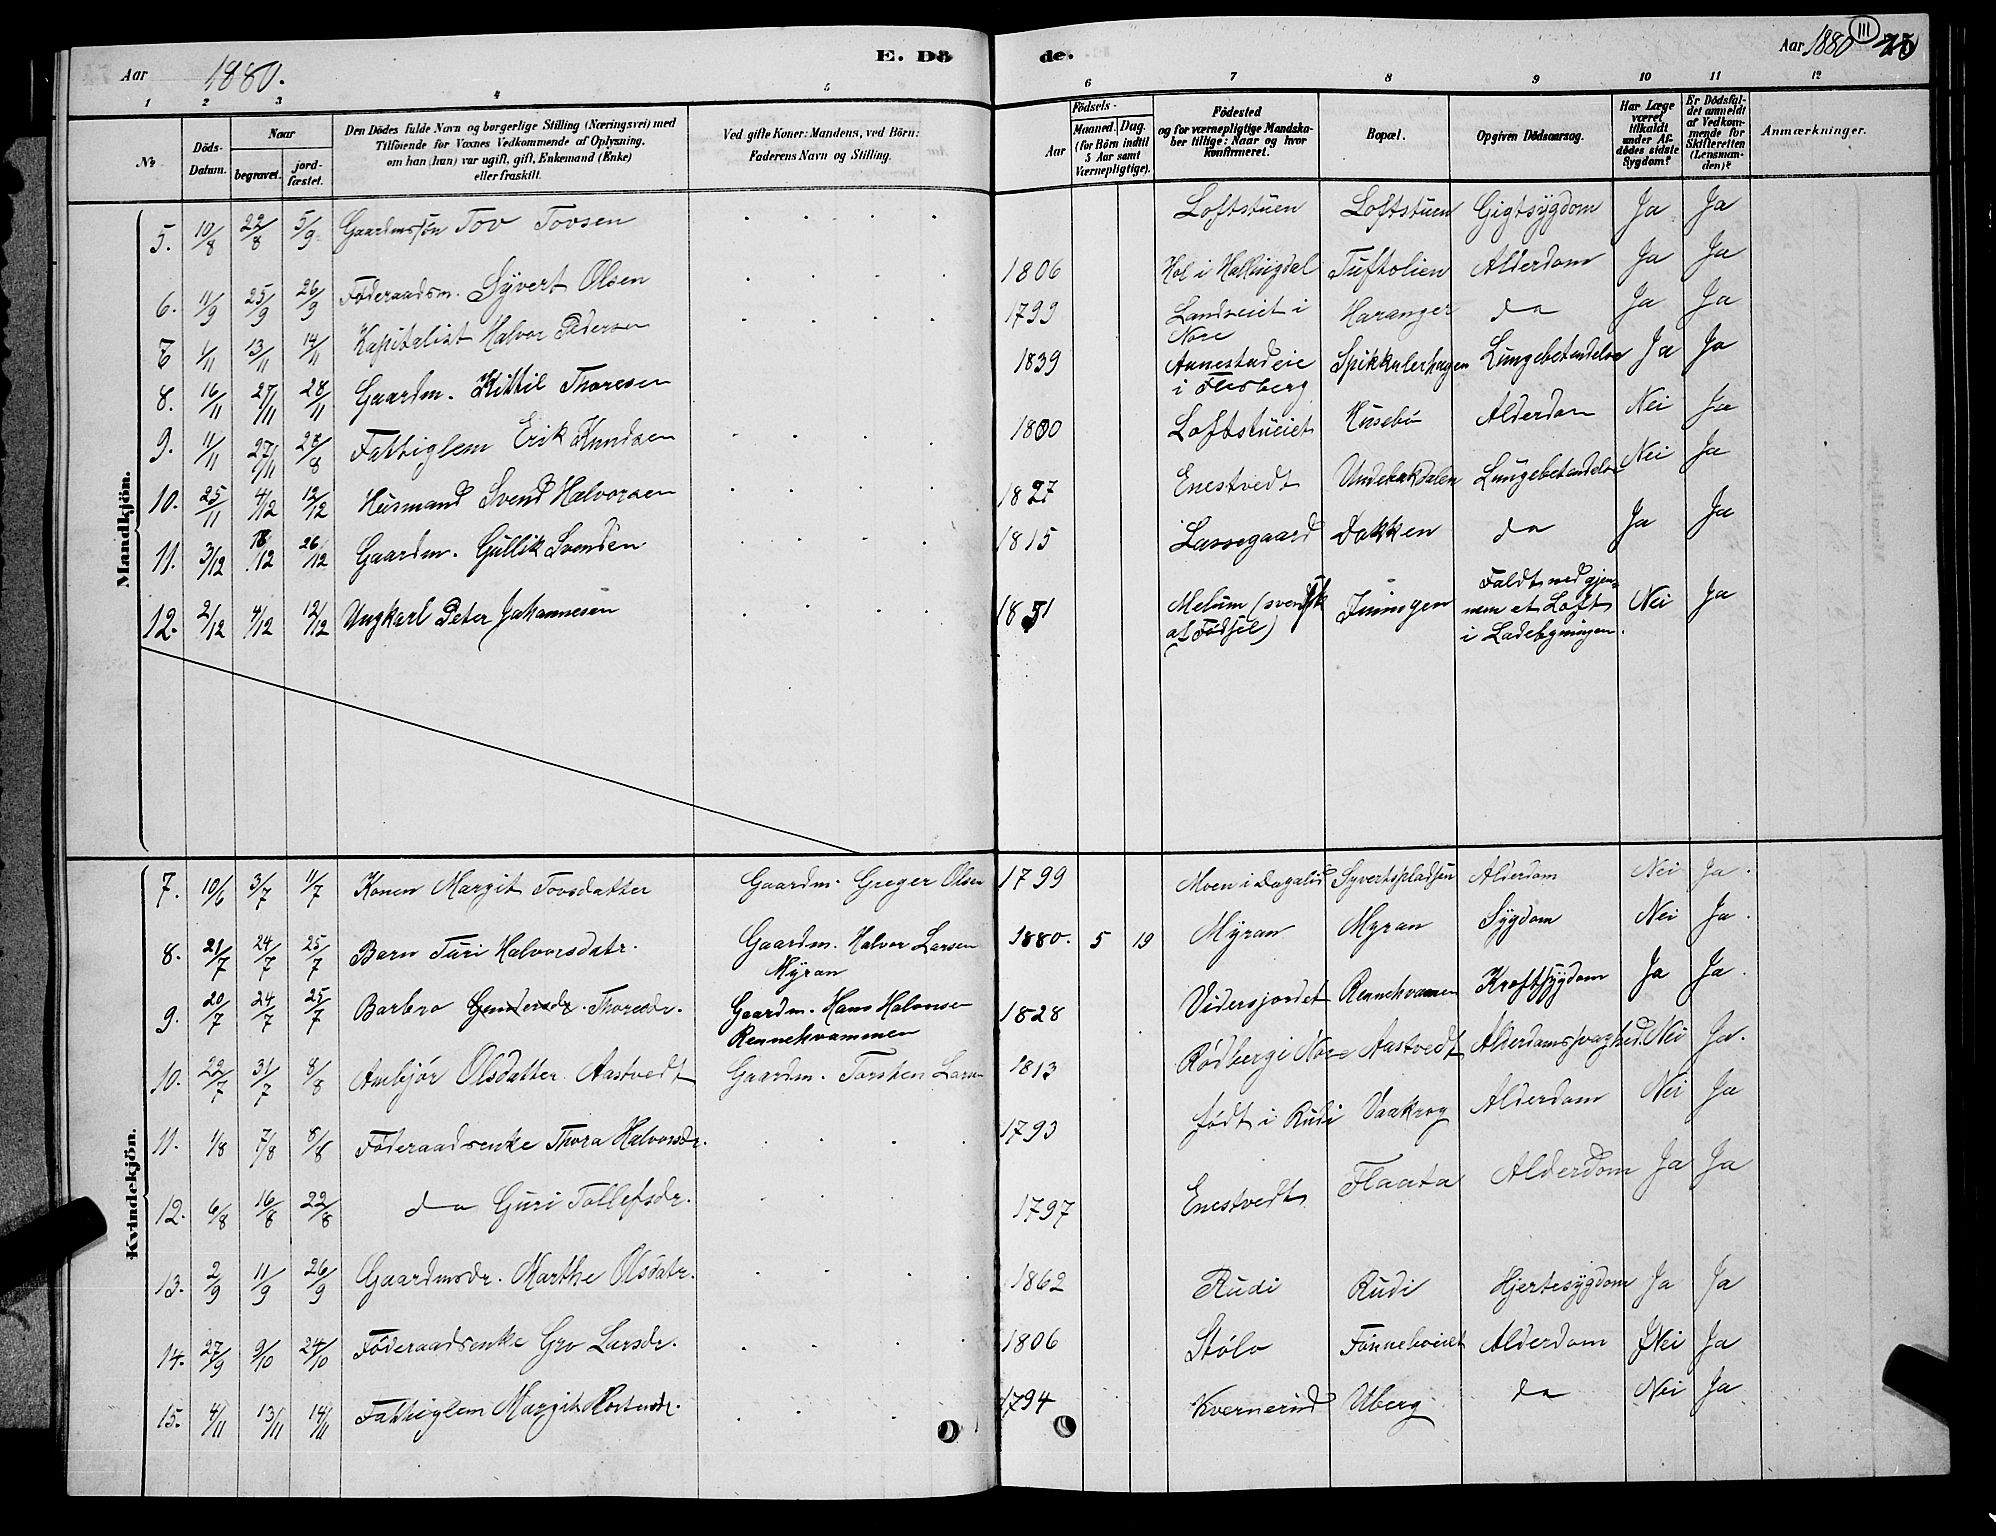 Aar 1880.
E. Dö
de.
Aar 1880
111
1 2 3 4 5
6 7 8 9 10 11 12
No
Döds-Datum.
Naar
begravet.
jord-fæstet.
Den Dödes fulde Navn og borgerlige Stilling (Næringsvei) med
Tilföiende for Voxnes Vedkommende af Oplysning,
om han (hun) var ugift, gift, Enkemand (Enke)
eller fraskilt.
Ved gifte Koner: Mandens, ved Börn:
Faderens Navn og Stilling.
Födsels-
Aar
Maaned. Dag.
(for Börn indtil
5 Aar samt
Værnepligtige).
Födested
og for værnepligtige Mandska-
ber tillige: Naar og hvor
konfirmeret.
Bopæl.
Opgiven Dödsaarsag.
Har Læge
været
tilkaldt
under Af-
dödes sidste
Sygdom?
Er Dödsfal-
det anmeldt
af Vedkom-
mende for
Skifteretten
(Lensman-
den)?
Anmærkninger.
Mandkjön.
5. 10/8 22/8 5/9 Gaardmssön Tov Tovsen Loftstuen Loftstuen Gigtsygdom Ja Ja
6. 11/9 25/9 26/9 Föderaadsm. Syvert Olsen 1806 Hol i Hallingdal Tuftolien Alderdom Ja Ja
7 1/11 13/11 14/11 Kapitalist Halvor Pedersen 1799 Landseiet i Nore Haranger do Ja Ja
8. 16/11 27/11 28/11 Gaardm. Kittil Thoresen 1839 Aanestadeie i Flesberg Spikkulerhagen Lungebetendelse Ja Ja
9. 11/11 27/11 28/8 Fattiglem Erik Knudsen 1800 Loftstueiet Husebö Alderdom Nei Ja
10. 25/11 4/12 12/12 Husmand Svend Halvorsen 1827 Enestvedt Lungebetendelse Nei Ja
11. 3/12 18/12 26/12 Gaardm. Gullik Svendsen 1815 Lassegaard Dokken do Ja Ja
12. 2/12 4/12 12/12 Ungkarl Peter Johannesen 1851 Melum (svensk af Födsel) Faldt ned gjen-
nem et Loft
i Ladebygningen. Nei Ja
Kvindekjön.
7. 10/6 3/7 11/7 Konen Margit Tovsdatter Gaardm. Greger Olsen 1799 Moen i Dagalid Syvertspladsen Alderdom Nei Ja.
8. 21/7 24/7 25/7 Barn Turi Halvorsdatr. Gaardm. Halvor Larsen Myran 1880. 5 19 Myran Myran Sygdom Nei Ja.
9. 20/7 24/7 25/7 Barbro Gundersdr. Thoresdr. Gaardm. Hans Halvorsen Rennehvammen 1828 Vidersjordet Rennehvamen Kræftsygdom Ja Ja.
10. 22/7 31/7 8/8 Ambjör Olsdatter Aastvedt Gaardm. Torsten Larsen 1813 Rödberg i Nore Aastvedt Alderdomssvaghed Nei Ja.
11. 1/8 7/8 8/8 Föderaadsenke Thora Halvorsdr. 1793 födt i Rudi Vaakrog Alderdom Nei Ja
12. 6/8 16/8 22/8 do Guri Tollefsdr. 1797 Enestvedt Flaata Alderdom Ja Ja
13. 2/9 11/9 26/9 Gaardmsdr. Marthe Olsdatr. 1862 Rudi Rudi Hjertesygdom Ja Ja
14. 27/9 9/10 24/10 Föderaadsenke Gro Larsdr. 1806 Stölo Fönneboeiet Alderdom Nei Ja
15. 4/11 13/11 14/11 Fattiglem Margit 1794 Kvernerud Uberg do Nei Ja